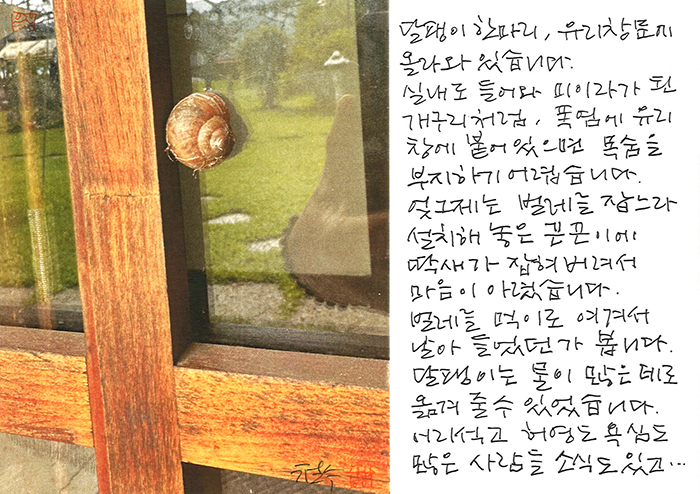 달팽이 한마리, 유리창문까지
올라와 있습니다.
실내로 들어와 미이라가 된
개구리처럼, 폭염에 유리
창에 붙어있으면 목숨을
부지하기 어렵습니다.
엊그제는 벌레를 잡느라
설치해 놓은 끈끈이에
딱새가 잡혀버려서
마음이 아렸습니다.
벌레를 먹이로 여겨서
날아 들었던가 봅니다.
달팽이는 물이 많은 데로
옮겨 줄 수 있었습니다.
어리석고 허영도 욕심도
많은 사람들 소식도 있고...